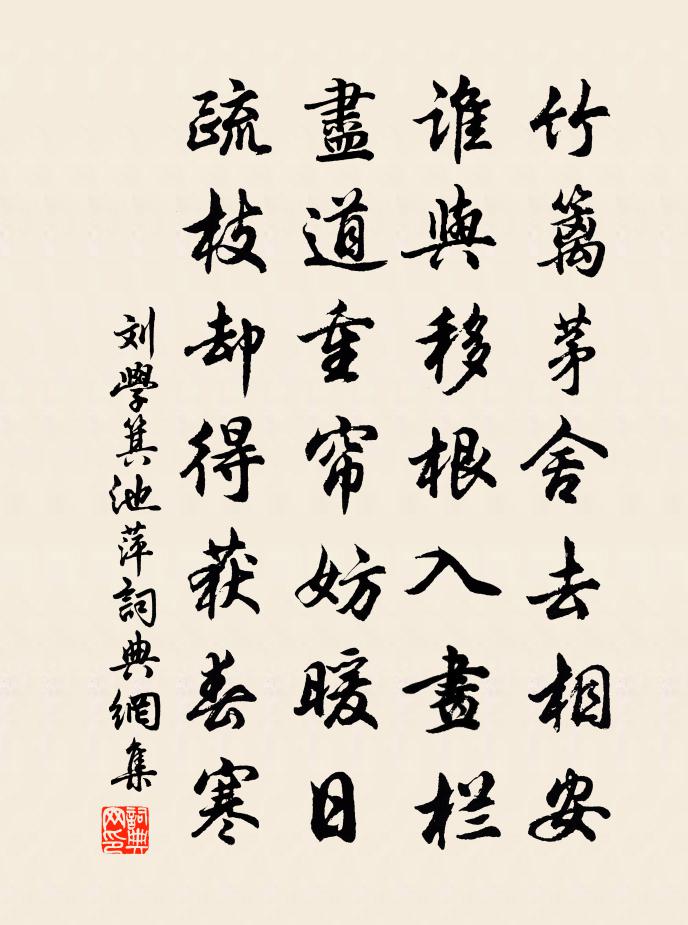 竹篱茅舍去相安
谁與移根入畫栏
盡道重帘妨暖日
疏枝却得获春寒
刘學箕池萍詞典網集
詞典网印